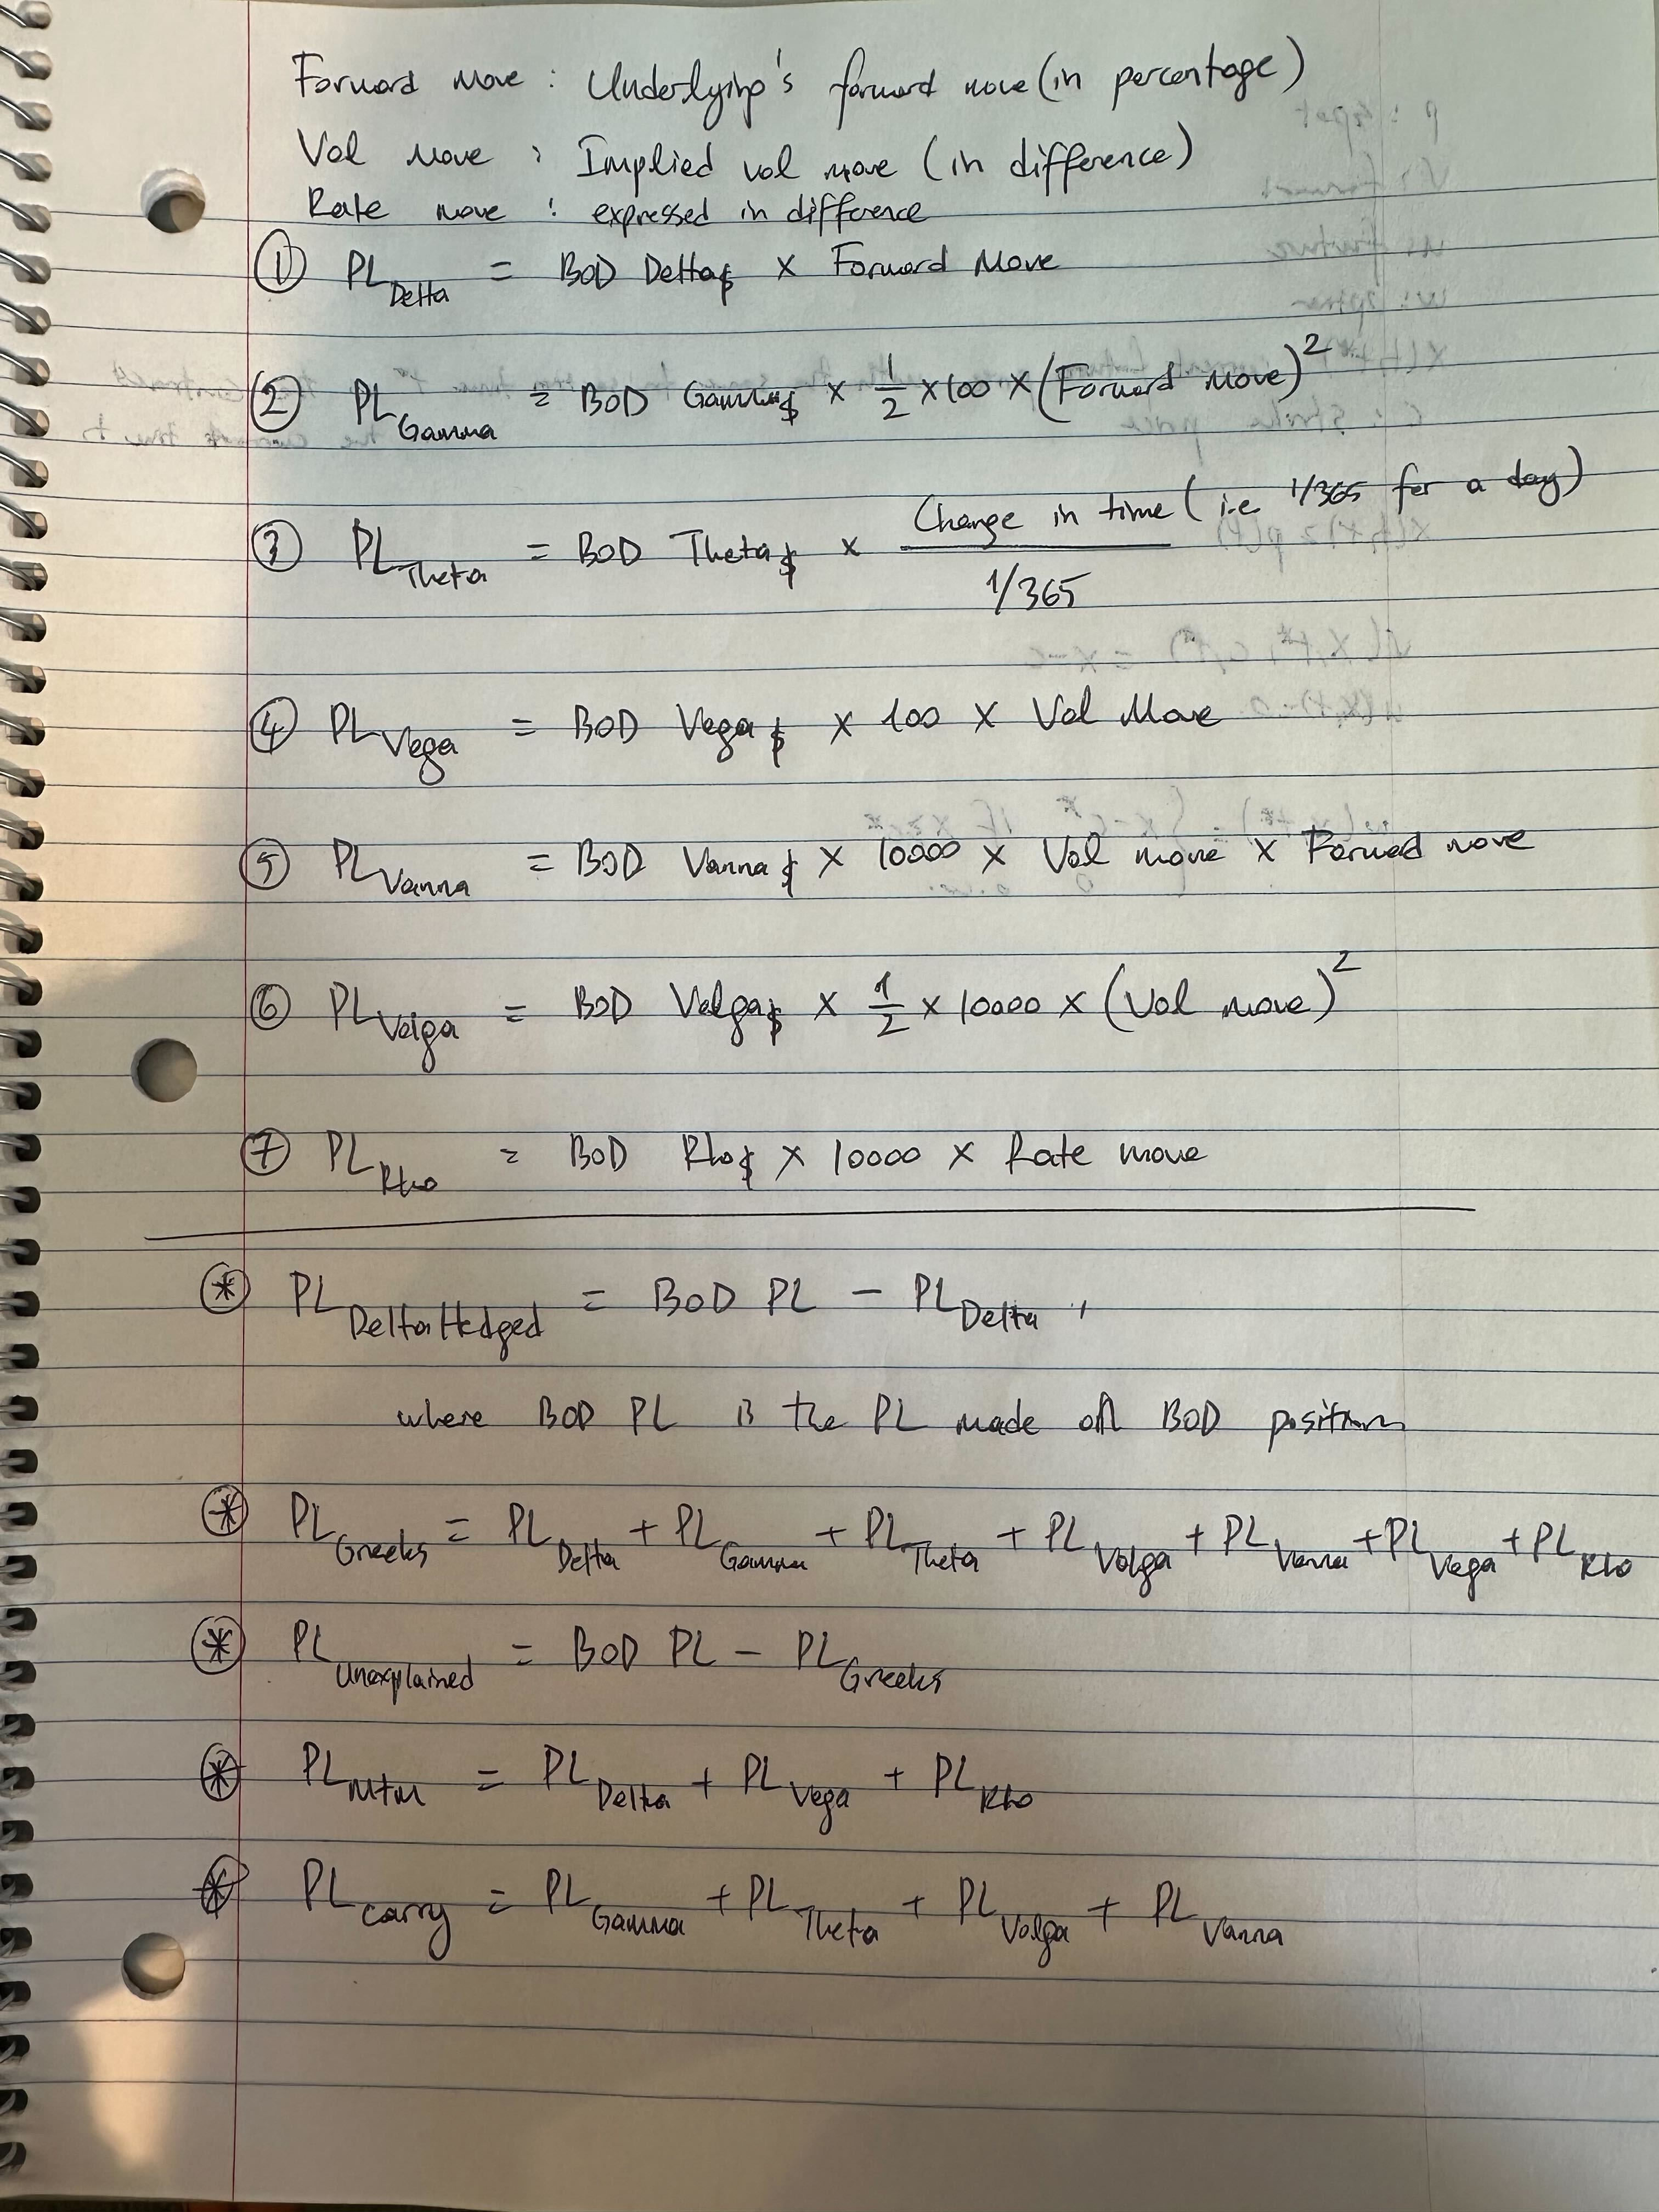 Forward Move : Underlying's forward move (in percentage)
Vol Move : Implied vol move (in difference)
Rate move : expressed in difference
① PL_Delta = BOD Delta$ × Forward Move
② PL_Gamma = BOD Gamma$ × 1/2 × 100 × (Forward Move)^2
③ PL_Theta = BOD Theta$ × Change in time (i.e 1/365 for a day) / 1/365
④ PL_Vega = BOD Vega$ × 100 × Vol Move
⑤ PL_Vanna = BOD Vanna$ × 10000 × Vol move × Forward move
⑥ PL_Volga = BOD Volga$ × 1/2 × 10000 × (Vol move)^2
⑦ PL_Rho = BOD Rho$ × 10000 × Rate move
* PL_DeltaHedged = BOD PL - PL_Delta ,
where BOD PL is the PL made off BOD positions
* PL_Greeks = PL_Delta + PL_Gamma + PL_Theta + PL_Volga + PL_Vanna + PL_Vega + PL_Rho
* PL_Unexplained = BOD PL - PL_Greeks
* PL_MtM = PL_Delta + PL_Vega + PL_Rho
* PL_carry = PL_Gamma + PL_Theta + PL_Volga + PL_Vanna